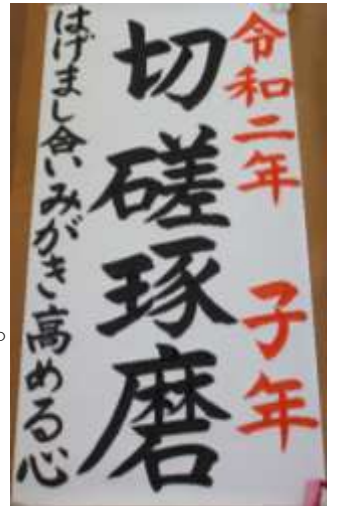 令和二年 子年
切磋琢磨
はげまし合いみがき高める心